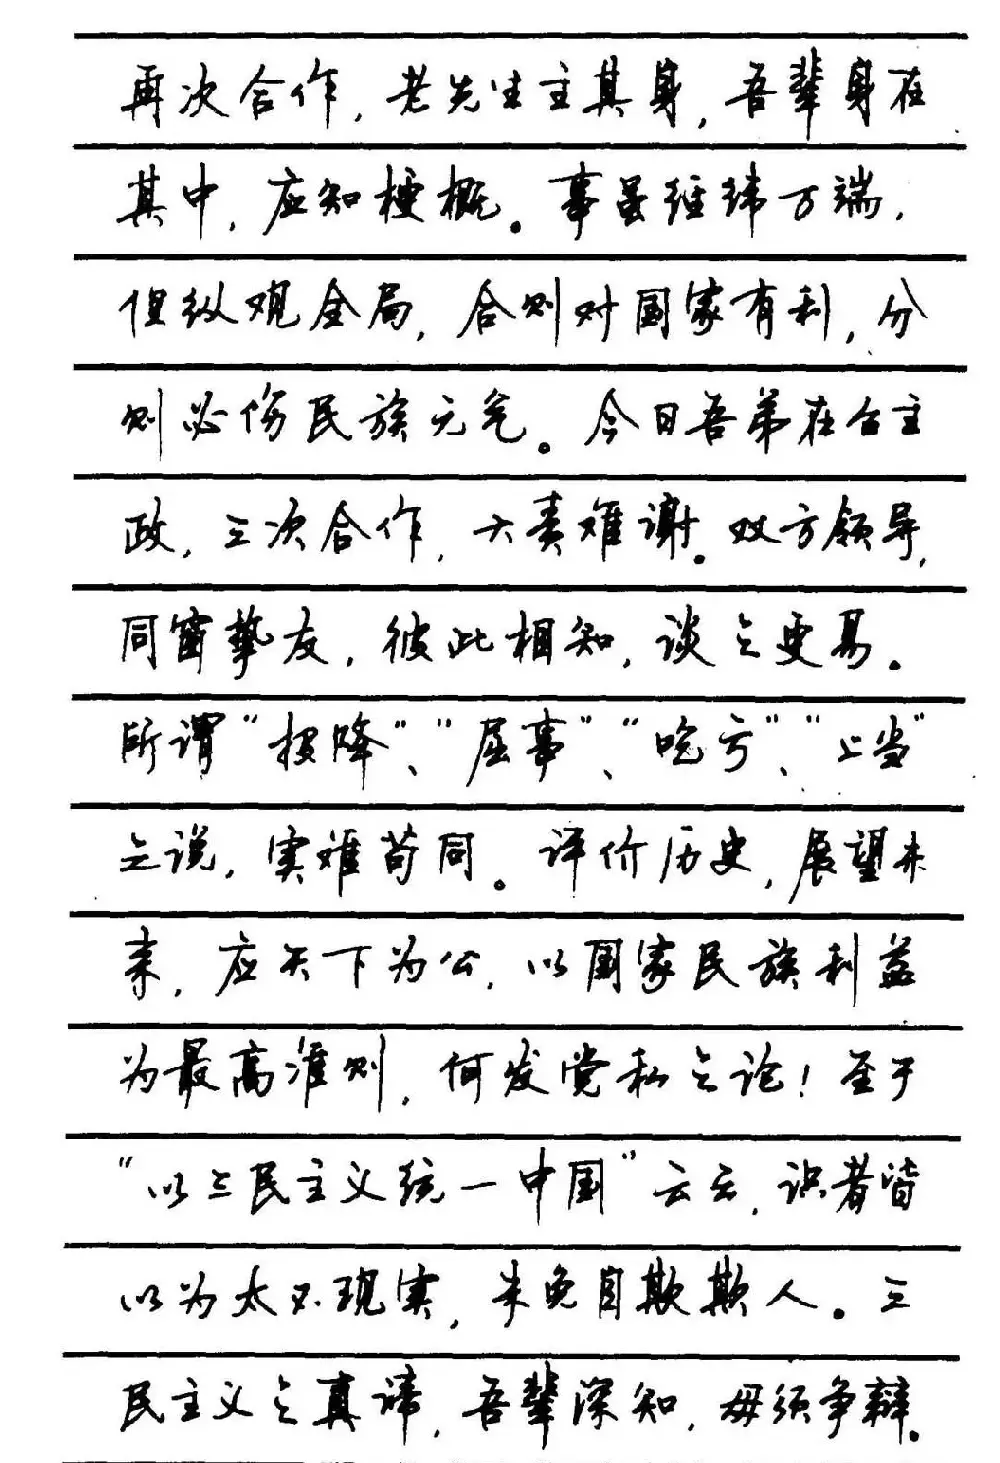 再次合作，老先生主其身，吾辈身在
其中，应知梗概。事虽经纬万端，
但纵观全局，合则对国家有利，分
则必伤民族元气。今日吾弟在台主
政，三次合作，大责难谢。双方领导，
同窗挚友，彼此相知，谈之更易。
所谓“投降”、“屈事”、“吃亏”、“上当”
之说，实难苟同。评价历史，展望未
来，应天下为公，以国家民族利益
为最高准则，何发党私之论！至于
“以三民主义统一中国”云云，识者皆
以为太不现实，未免自欺欺人。三
民主义之真谛，吾辈深知，毋须争辩。